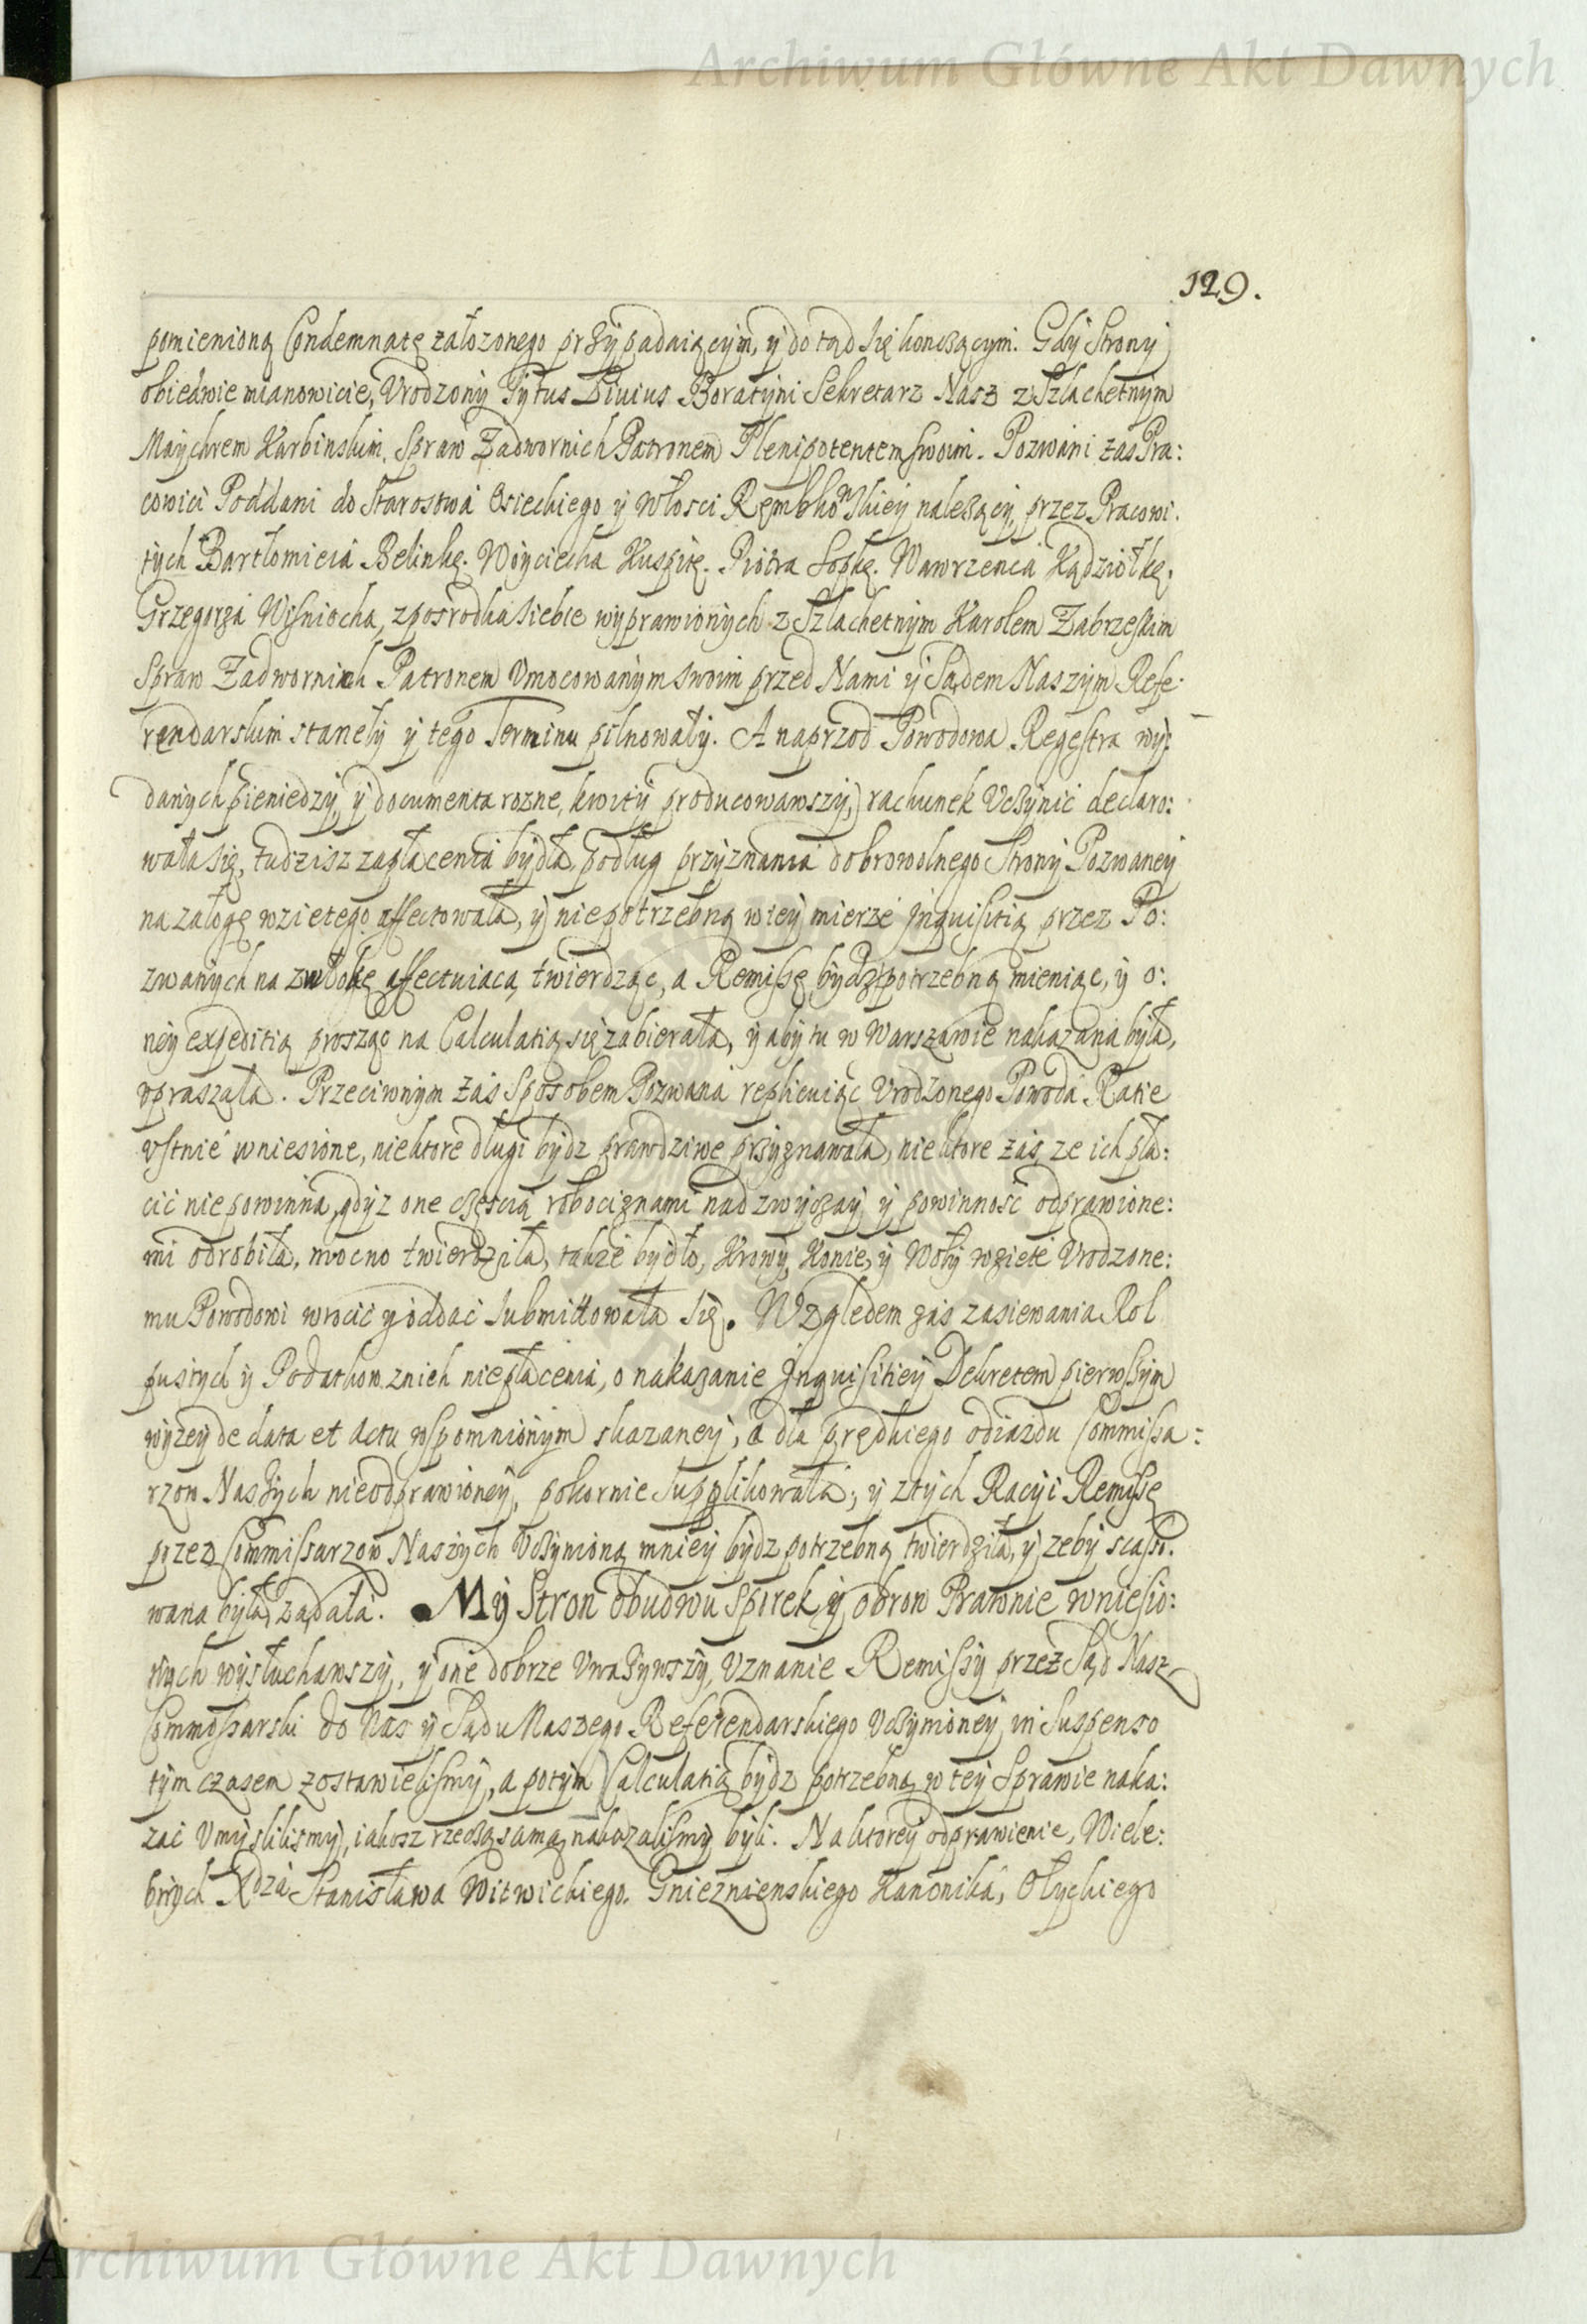 Archiwum Główne Akt Dawnych
129.
pomienioną Condemnatę założonego przypadaiącym, y do tąd się kończącym. Gdy Strony
obiedwie mianowicie, Vrodzony Tytus Liuius Boratyni Sekretarz Nasz z Szlachetnym
Maychrem Karbinskim, Spraw Zadwornich Patronem Plenipotentem swoim. Pozwani zas Pra:
cowici Poddani do Starostwa Osieckiego y Włosci Rembkowskiey należący, przez Pracowi:
tych Bartłomieia Belinkę. Woyciecha Kuspitę. Piotra Sopkę. Wawrzenca Kądziołkę.
Grzegorza Wisniocha, zposrodka siebie wyprawionych z Szlachetnym Karolem Zabrzeskim
Spraw Zadwornich Patronem Vmocowanym swoim przed Nami y Sądem Naszym Refe:
rendarskim stanęły y tego Terminu pilnowały. A naprzod Powodowa Regestra wy:
danych pieniedzy, y documenta rozne, kwity producowawszy, rachunek Vczynić declaro:
wała się, tudzisz zapłacenia bydła, podług przyznania dobrowolnego Strony Pozwaney
na załogę wzietego affectowała, y niepotrzebną wtey mierze Inquisitią przez Po:
zwanych na zwłokę affectuiacą twierdząc, a Remissę bydz potrzebną mieniąc, y o:
ney expeditią prosząc na Calculatią się zabierała, y aby tu w Warszawie nakazana była,
vpraszała. Przeciwnym zaś Sposobem Pozwana replicuiąc Vrodzonego Powoda Ratie
vstnie wniesione, niektore długi bydz prawdziwe przyznawała, niektore zaś, ze ich pła:
cić niepowinna, gdyz one częscią robociznami nad zwyczay y powinność odprawione:
mi odrobiła, mocno twierdziła, także bydło, Krowy, Konie, y Woły wzięte Vrodzone:
mu Powodowi wrocić y oddać submittowała się. Względem zaś zasiewania Rol
pustych y Podatkow znich niepłacenia, o nakazanie Inquisitiey Dekretem pierwszym
wyżey de data et actu wspomnionym skazaney, a dla prędkiego odiazdu Commissa:
rzow Naszych nieodprawioney, pokornie supplikowała; y z tych Racyi Remissę
przez Commissarzow Naszych Vczynioną mniey bydz potrzebną twierdziła, y zeby scasso:
wana była, ządała. My Stron obudwu Sporek y obron Prawnie wniesio:
nych wysłuchawszy, y one dobrze Vważywszy, Vznanie Remissy przez Sąd Nasz
Commissarski do Nas y Sądu Naszego Referendarskiego Vczynioney, in suspenso
tym czasem zostawielismy, a potym Calculatią bydz potrzebną w tey Sprawie naka:
zać Vmyslilismy, iakosz rzeczą samą nakazalismy byli. Naktorey odprawienie, Wiele:
bnych Xdza Stanisława Witwickiego. Gnieznienskiego Kanonika, Ołyckiego
Archiwum Główne Akt Dawnych